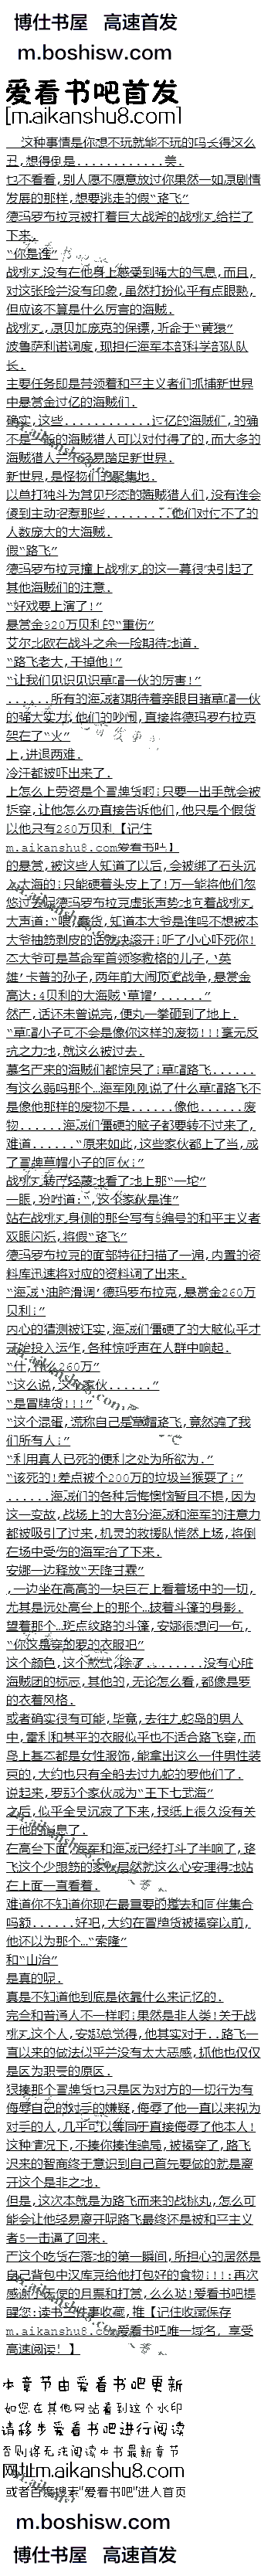 博仕书屋 高速首发
m.boshisw.com
爱看书吧首发
[m.aikanshu8.com]
这种事情是你想不玩就能不玩的吗长得这么
丑,想得倒是............美.
也不看看,别人愿不愿意放过你果然一如原剧情
发展的那样,想要逃走的假“路飞”
德玛罗布拉克被扛着巨大战斧的战桃丸给拦了
下来.
“你是谁”
战桃丸没有在他身上感受到强大的气息,而且,
对这张脸并没有印象,虽然打扮似乎有点眼熟,
但应该不算是什么厉害的海贼.
战桃丸,原贝加庞克的保镖,听命于“黄猿”
波鲁萨利诺调度,现担任海军本部科学部队队
长.
主要任务即是带领着和平主义者们抓捕新世界
中悬赏金过亿的海贼们.
确实,这些............过亿的海贼们,的确
不是一般的海贼猎人可以对付得了的,而大多的
海贼猎人并不轻易踏足新世界.
新世界,是怪物们的聚集地.
以单打独斗为常见形态的海贼猎人们,没有谁会
傻到主动招惹那些.........他们对付不了的
人数庞大的大海贼.
假“路飞”
德玛罗布拉克撞上战桃丸的这一幕很快引起了
其他海贼们的注意.
“好戏要上演了!”
悬赏金920万贝利的“重伤”
艾尔北欧在战斗之余一脸期待地道.
“路飞老大,干掉他!”
“让我们见识见识草帽一伙的厉害!”
......所有的海贼都期待着亲眼目睹草帽一伙
的强大实力,他们的吵闹,直接将德玛罗布拉克
架在了“火”
上,进退两难.
冷汗都被吓出来了.
上怎么上劳资是个冒牌货啊!只要一出手就会被
拆穿,让他怎么办直接告诉他们,他只是个假货
以他只有260万贝利【记住
m.aikanshu8.com爱看书吧】
的悬赏,被这些人知道了以后,会被绑了石头沉
入大海的!只能硬着头皮上了!万一能将他们忽
悠过去呢德玛罗布拉克虚张声势地盯着战桃丸
大声道:“喂,蠢货,知道本大爷是谁吗不想被本
大爷抽筋剥皮的话就快滚开!听了小心吓死你!
本大爷可是革命军首领多拉格的儿子,‘英
雄’卡普的孙子,两年前大闹顶上战争,悬赏金
高达:4贝利的大海贼‘草帽’......”
然而,话还未曾说完,便丸一拳砸到了地上.
“草帽小子可不会是像你这样的废物!!!毫无反
抗之力地,就这么被过去.
慕名而来的海贼们都惊呆了!草帽路飞......
有这么弱吗那个…海军刚刚说了什么草帽路飞不
是像他那样的废物不是......像他......废
物......海贼们僵硬的脑子都要转不过来了,
难道......“原来如此,这些家伙都上了当,成
了冒牌草帽小子的同伙!”
战桃丸转而轻蔑地看了地上那“一坨”
一眼,吩咐道:“,这个家伙是谁”
站在战桃丸身侧的那台写有5编号的和平主义者
双眼闪烁,将假“路飞”
德玛罗布拉克的面部特征扫描了一遍,内置的资
料库迅速将对应的资料调了出来.
“海贼‘油腔滑调’德玛罗布拉克,悬赏金260万
贝利!”
内心的猜测被证实,海贼们僵硬了的大脑似乎才
开始投入运作,各种惊呼声在人群中响起.
“什,什么260万”
“这么说,这个家伙......”
“是冒牌货!!!”
“这个混蛋,谎称自己是草帽路飞,竟然骗了我
们所有人!”
“利用真人已死的便利之处为所欲为.”
“该死的!差点被个200万的垃圾当猴耍了!”
......海贼们的各种后悔懊恼暂且不提,因为
这一变故,战场上的大部分海贼和海军的注意力
都被吸引了过来,机灵的救援队悄然上场,将倒
在场中受伤的海军抬了下来.
安娜一边释放“天降甘霖”
,一边坐在高高的一块巨石上看着场中的一切,
尤其是远处高台上的那个…披着斗篷的身影.
望着那个…斑点纹路的斗篷,安娜很想问一句,
“你这是穿的罗的衣服吧”
这个颜色,这个款式,除了........没有心脏
海贼团的标志,其他的,无论怎么看,都像是罗
的衣着风格.
或者确实很有可能,毕竟,去往九蛇岛的男人
中,雷利和甚平的衣服似乎也不适合路飞穿,而
岛上基本都是女性服饰,能拿出这么一件男性装
束的,大约也只有全船去过九蛇的罗他们了.
说起来,罗那个家伙成为“王下七武海”
之后,似乎全员沉寂了下来,报纸上很久没有关
于他的消息了.
在高台下面海军和海贼已经打斗了半晌了,路
飞这个少跟筋的家伙居然就这么心安理得地站
在上面一直看着.
难道你不知道你现在最重要的是去和同伴集合
吗额......好吧,大约在冒牌货被揭穿以前,
他还以为那个…“索隆”
和“山治”
是真的呢.
真是不知道他到底是依靠什么来记忆的.
完全和普通人不一样啊!果然是非人类!关于战
桃丸这个人,安娜总觉得,他其实对于..路飞一
直以来的做法似乎并没有太大恶感,抓他也仅仅
是因为职责的原因.
狠揍那个冒牌货也只是因为对方的一切行为有
侮辱自己的对手的嫌疑,侮辱了他一直以来视为
对手的人,几乎可以等同于直接侮辱了他本人!
这种情况下,不揍你揍谁骗局,被揭穿了,路飞
迟来的智商终于意识到自己首先要做的就是离
开这个是非之地.
但是,这次本就是为路飞而来的战桃丸,怎么可
能会让他轻易离开呢路飞最终还是被和平主义
者5一击逼了回来.
而这个吃货在落地的第一瞬间,所担心的居然是
自己背包中汉库克给他打包好的食物!!!:再次
感谢小天使的月票和打赏,么么哒!爱看书吧提
醒您:读书三件事收藏,推【记住收藏保存
m.aikanshu8.com爱看书吧唯一域名, 享受
高速阅读! 】
本章节由爱看书吧更新
如您在其他网站看到这个水印
请移步爱看书吧进行阅读
否则将无法阅读本书最新章节
网址m.aikanshu8.com
或者百度搜索"爱看书吧"进入首页
m.boshisw.com
博仕书屋 高速首发